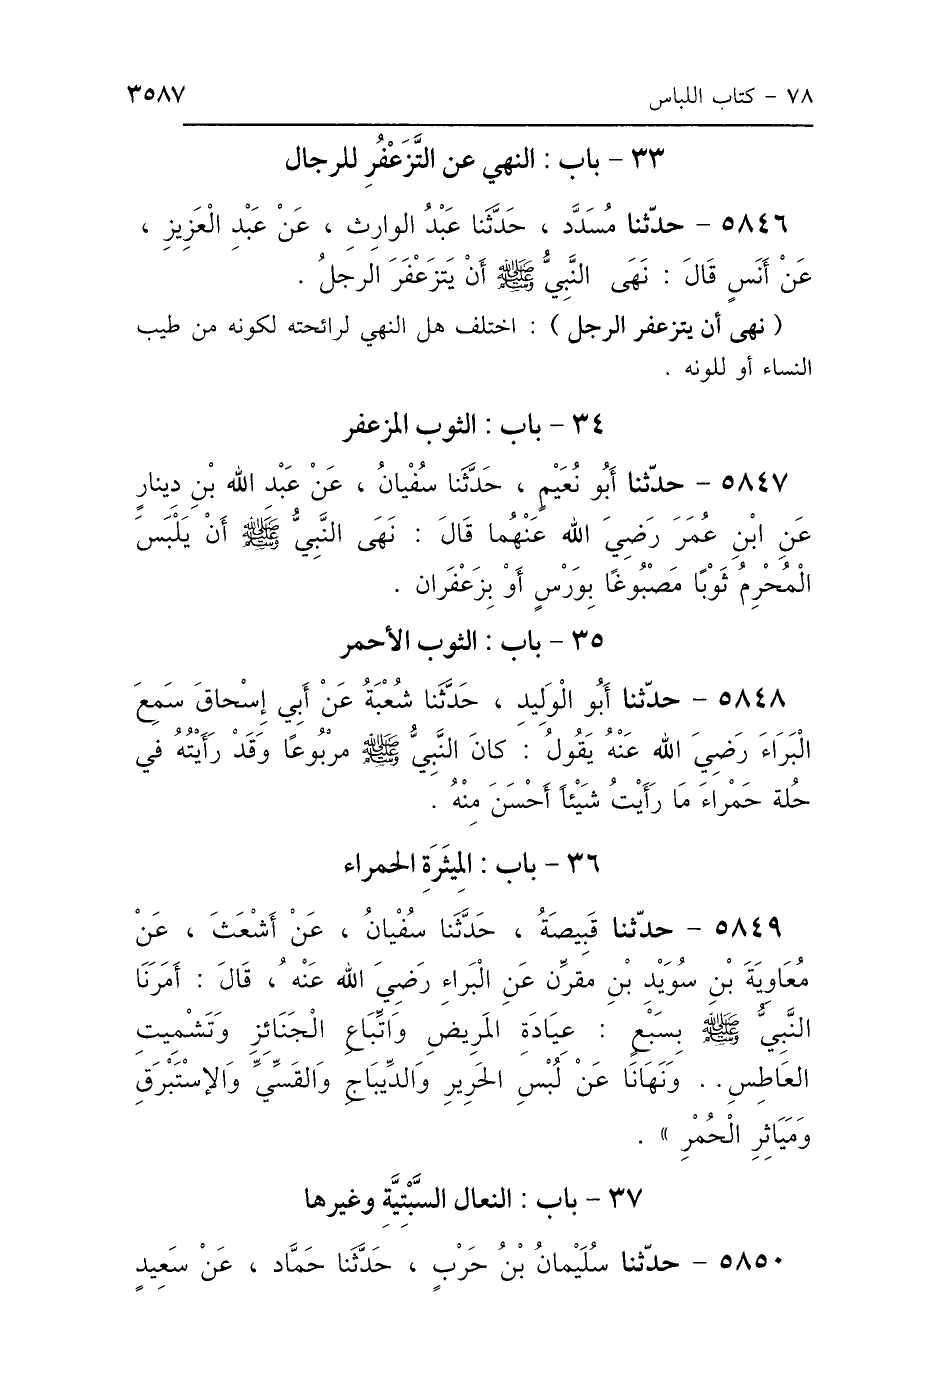 ٧٨ - كتاب اللباس ٣٥٨٧
٣٣ - باب : النهي عن التَّزَعْفُرِ للرجال
٥٨٤٦ - حدّثنا مُسَدَّد ، حَدَّثَنا عَبْدُ الوارِثِ ، عَنْ عَبْدِ الْعَزِيزِ ،
عَنْ أَنَسٍ قَالَ : نَهَى النَّبِيُّ ﷺ أَنْ يَتَزَعْفَرَ الرجلُ .
( نهى أن يتزعفر الرجل ) : اختلف هل النهي لرائحته لكونه من طيب
النساء أو للونه .
٣٤ - باب : الثوب المزعفر
٥٨٤٧ - حدّثنا أَبُو نُعَيْمٍ ، حَدَّثَنا سُفْيانُ ، عَنْ عَبْدِ الله بْنِ دِينارٍ
عَنِ ابْنِ عُمَرَ رَضِيَ الله عَنْهُما قَالَ : نَهَى النَّبِيُّ ﷺ أَنْ يَلْبَسَ
الْمُحْرِمُ ثَوْبًا مَصْبُوغًا بِوَرْسٍ أَوْ بِزَعْفَران .
٣٥ - باب : الثوب الأحمر
٥٨٤٨ - حدّثنا أَبُو الْوَلِيدِ ، حَدَّثَنا شُعْبَةُ عَنْ أَبِي إِسْحاقَ سَمِعَ
الْبَرَاءَ رَضِيَ الله عَنْهُ يَقُولُ : كانَ النَّبِيُّ ﷺ مرْبُوعًا وَقَدْ رَأَيْتُهُ فِي
حُلة حَمْراءَ مَا رَأَيْتُ شَيْئاً أَحْسَنَ مِنْهُ .
٣٦ - باب : المِيثَرَةِ الحمراء
٥٨٤٩ - حدّثنا قَبِيصَةُ ، حَدَّثَنا سُفْيانُ ، عَنْ أَشْعَثَ ، عَنْ
مُعَاوِيَةَ بْنِ سُوَيْدِ بْنِ مقرِّن عَنِ الْبَراءِ رَضِيَ الله عَنْهُ ، قَالَ : أَمَرَنَا
النَّبِيُّ ﷺ بِسَبْعٍ : عِيَادَةِ المَرِيضِ وَاتِّبَاعِ الْجَنَائِزِ وَتَشْمِيتِ
العَاطِسِ . . وَنَهَانَا عَنْ لُبْسِ الحَرِيرِ وَالدِّيباجِ وَالقَسِّيِّ وَالإسْتَبْرَقِ
وَمَيَاثِرِ الْحُمْرِ » .
٣٧ - باب : النعال السِّبْتِيَّة وغيرها
٥٨٥٠ - حدّثنا سُلَيْمانُ بْنُ حَرْبٍ ، حَدَّثَنا حَمَّاد ، عَنْ سَعِيدٍ